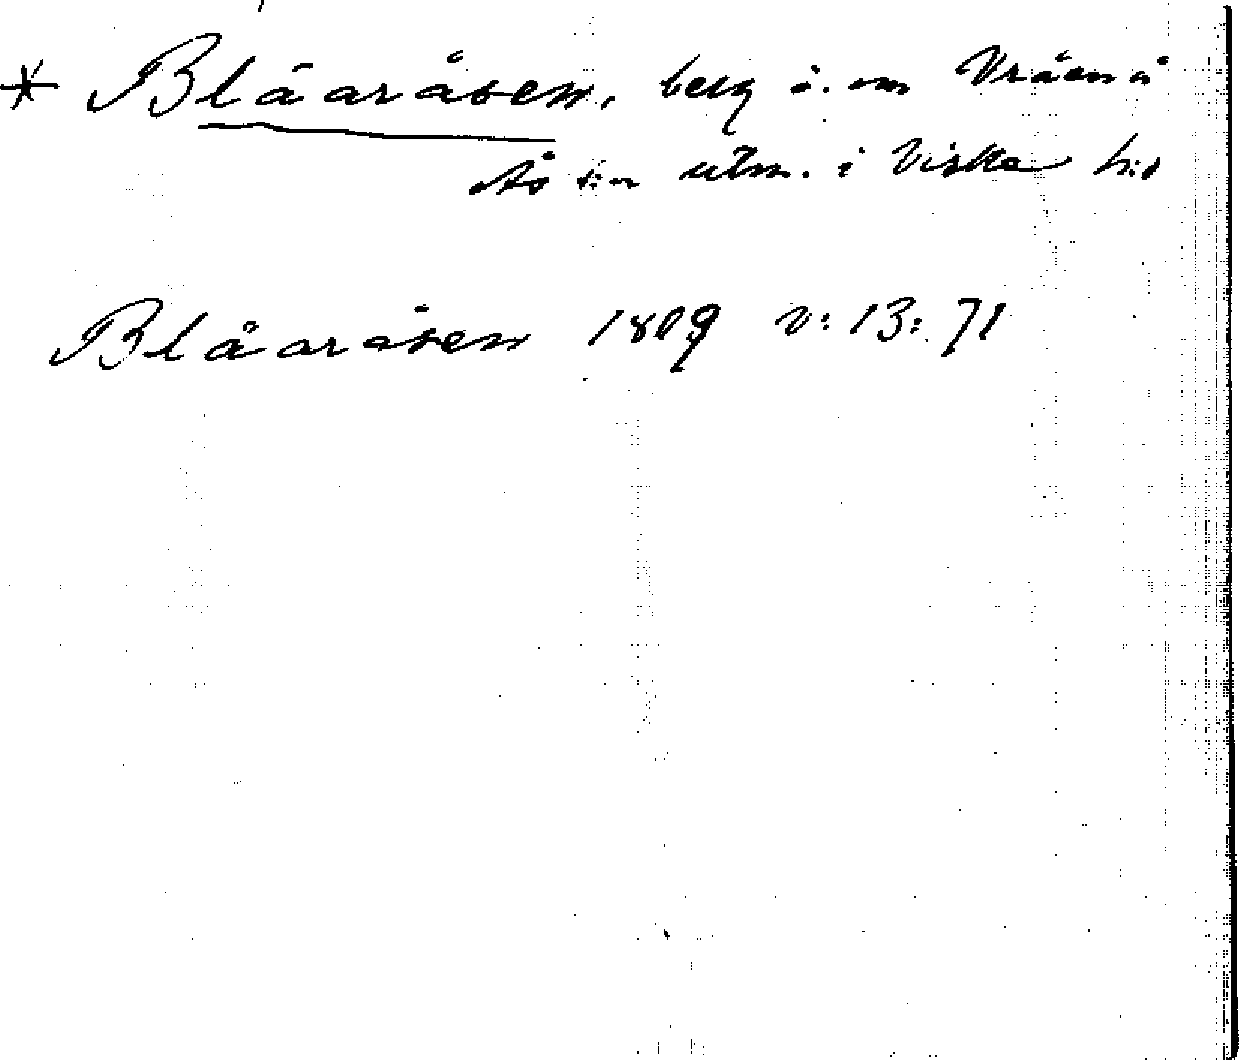 * Blåaråsen, berg ö. om Vråen å
Ås s:n utm. i Viske h:d
Blåaråsen 1809 v: 13: 71